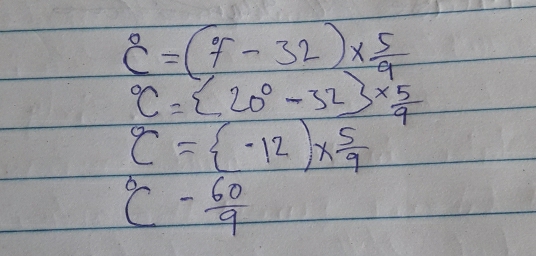 °C = (°F - 32) × 5/9
°C = {20° - 32} × 5/9
°C = {-12) × 5/9
°C - 60/9